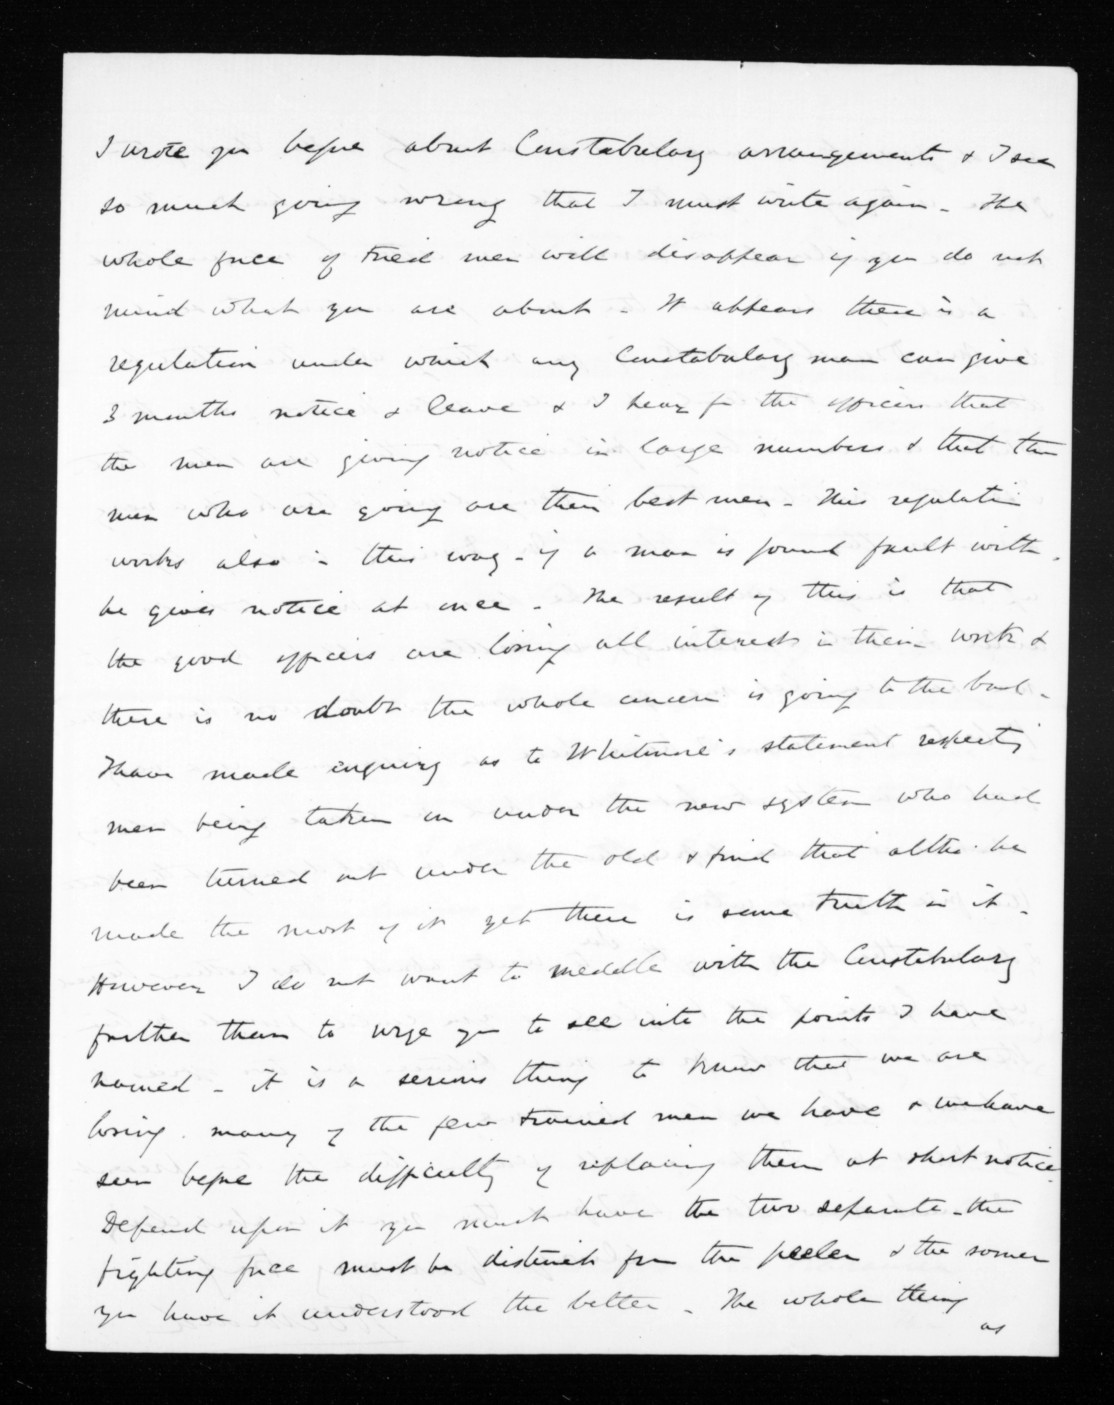 I wrote you before about Constabulary arrangements & I see
so much going wrong that I must write again - The
whole force of tried men will disappear if you do not
mind what you are about - It appears there is a
regulation under which any Constabulary man can give
3 months notice & leave & I hear fr the officers that
the men are giving notice in large numbers & that the
men who are going are their best men - This regulation
works also in this way - if a man is found fault with
he gives notice at once - The result of this is that
the good officers are losing all interest in their work &
there is no doubt the whole concern is going to the bad -
I have made enquiry as to Whitmore's statement respecting
men being taken on under the new system who had
been turned out under the old & find that altho' he
made the most of it yet there is some truth in it -
However I do not want to meddle with the Constabulary
further than to urge you to see into the points I have
named - it is a serious thing to know that we are
losing many of the few trained men we have & we have
seen before the difficulty of replacing them at short notice.
Depend upon it you must have the two separate - the
fighting force must be distinct from the peeler & the sooner
you have it understood the better - The whole thing
as